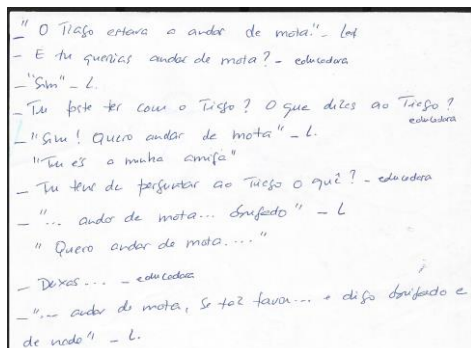 _" O Tiago estava a andar de mota." - L
- E tu querias andar de mota? - educadora
- "Sim" - L.
- Tu foste ter com o Tiago? O que dizes ao Tiago?
educadora
- "Sim! Quero andar de mota" - L.
"Tu és a minha amiga"
- Tu tens de perguntar ao Tiago o quê? - educadora
- "... andar de mota... obrigado" - L
" Quero andar de mota...."
- Deixas... - educadora
- "... andar de mota, se faz favor... e digo obrigado e
de nada" - L.